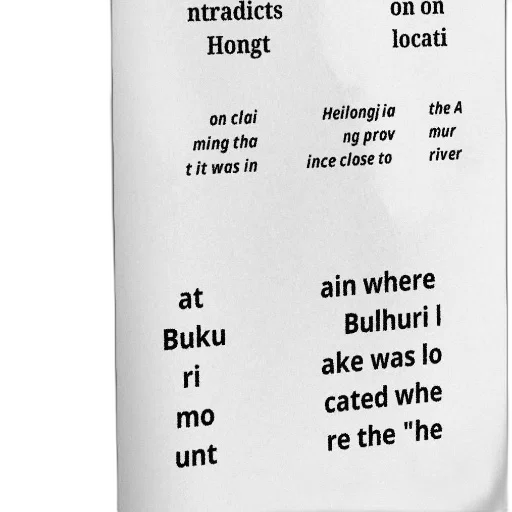 ntradicts
Hongt
on on
locati
on clai
ming tha
t it was in
Heilongjia
ng prov
ince close to
the A
mur
river
at
Buku
ri
mo
unt
ain where
Bulhuri l
ake was lo
cated whe
re the "he